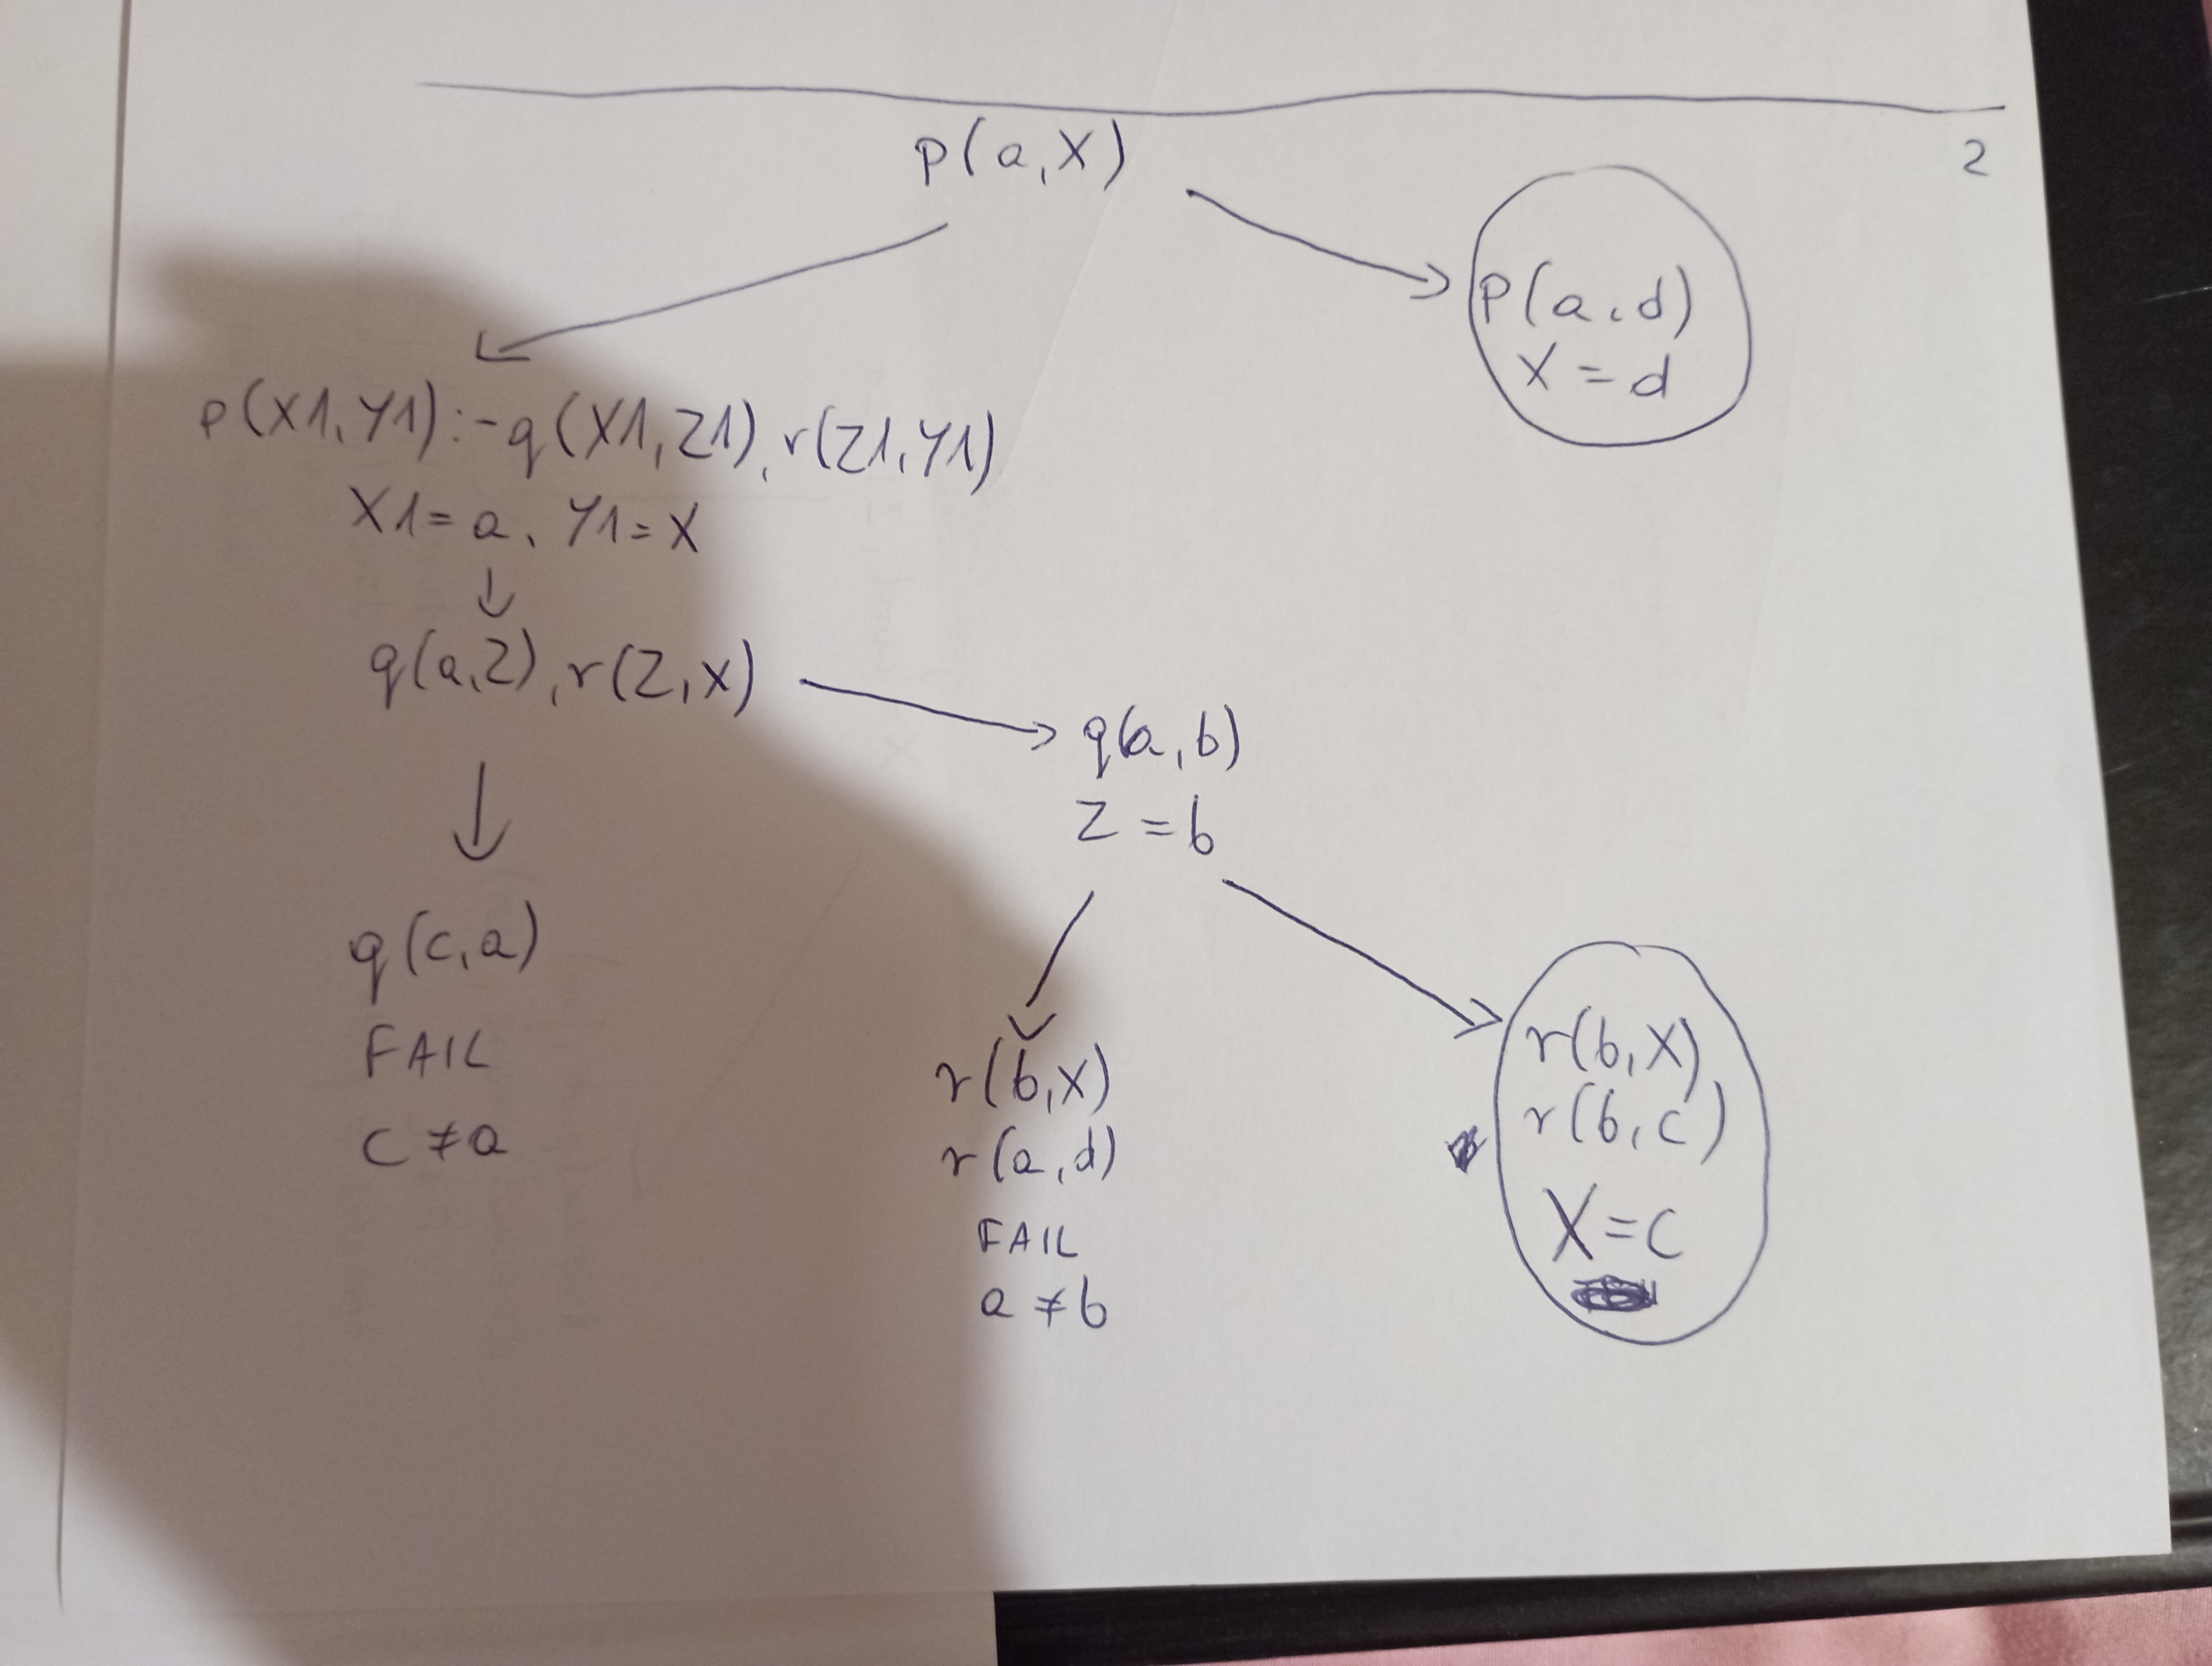 2
p(a,X)
p(a,d)
X=d
p(X1,Y1):-q(X1,Z1),r(Z1,Y1)
X1=a, Y1=X
q(a,Z),r(Z,X)
q(a,b)
Z=b
q(c,a)
FAIL
c≠a
r(b,X)
r(a,d)
FAIL
a≠b
r(b,X)
r(b,c)
X=c